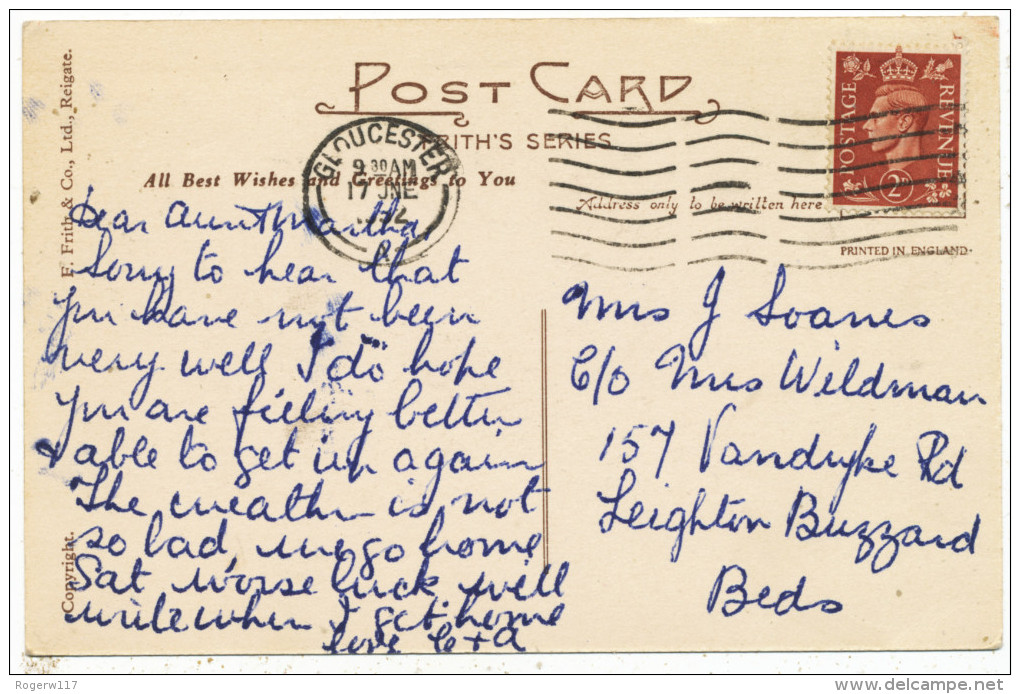 POST CARD
FRITH'S SERIES
All Best Wishes and Greetings to You
Address only to be written here
POSTAGE
REVENUE
2D
PRINTED IN ENGLAND
GLOUCESTER
9 30 AM
17 JNE
F. Frith & Co., Ltd., Reigate.
Copyright.
Dear Aunt Martha
Sorry to hear that
you have not been
very well I do hope
you are feeling better
& able to get up again
The weather is not
so bad, we go home
Sat worse luck will
write when I get home
love C + A
Mrs J Soanes
C/o Mrs Wildman
157 Vandyke Rd
Leighton Buzzard
Beds
Rogerw117
delcampe.net